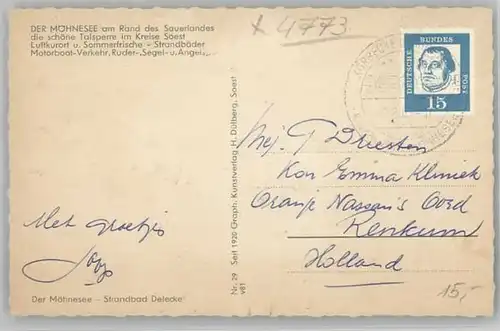 DER MÖHNESEE am Rand des Sauerlandes
die schöne Talsperre im Kreise Soest
Luftkurort u. Sommerfrische - Strandbäder
Motorboot-Verkehr, Ruder-, Segel- u. Angel
x 4773
DEUTSCHE BUNDES POST
15
Mej. T Driesten
Kon Emma Kliniek
Oranje Nassau's Oord
Renkum
Holland
Met groetjes
Der Möhnesee - Strandbad Delecke
Nr. 29 Seit 1920 Graph. Kunstverlag H. Dülberg, Soest
v81
15,-